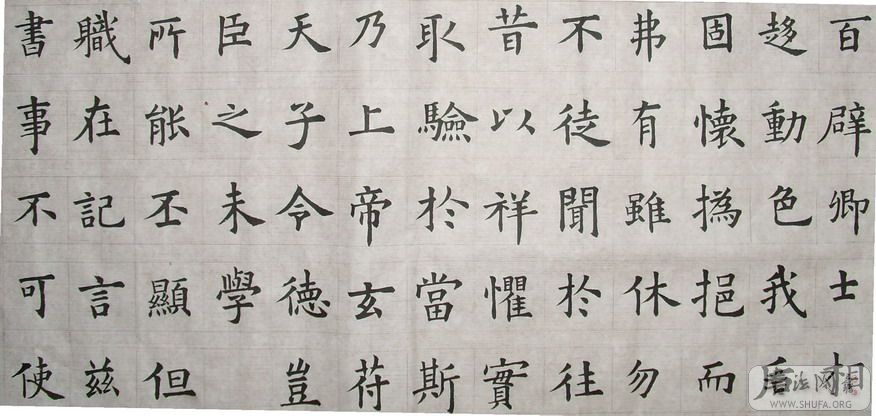 百辟卿士相
趍動色我后
固懷撝挹而
弗有雖休勿
不徒聞於往
昔以祥懼實
取驗於當斯
乃上帝玄苻
天子令德豈
臣之未學
所能丕顯但
職在記言茲
書事不可使
WWW.SHUFA.ORG